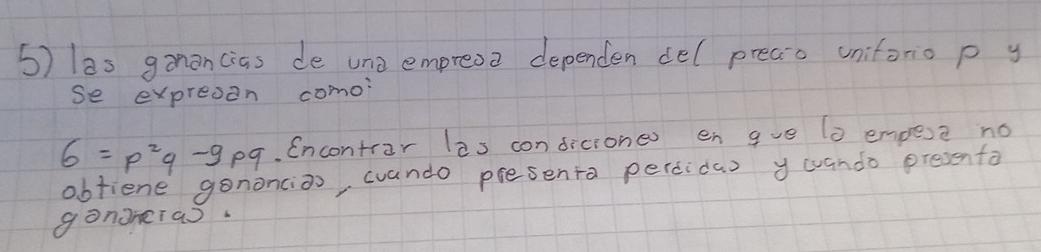 5) las ganancias de una empresa dependen del precio unitario p y
se expresan como:
G = p²q - 9pq. Encontrar las condiciones en que la empesa no
obtiene ganancias, cuando presenta perdidas y cuando presenta
ganancias.